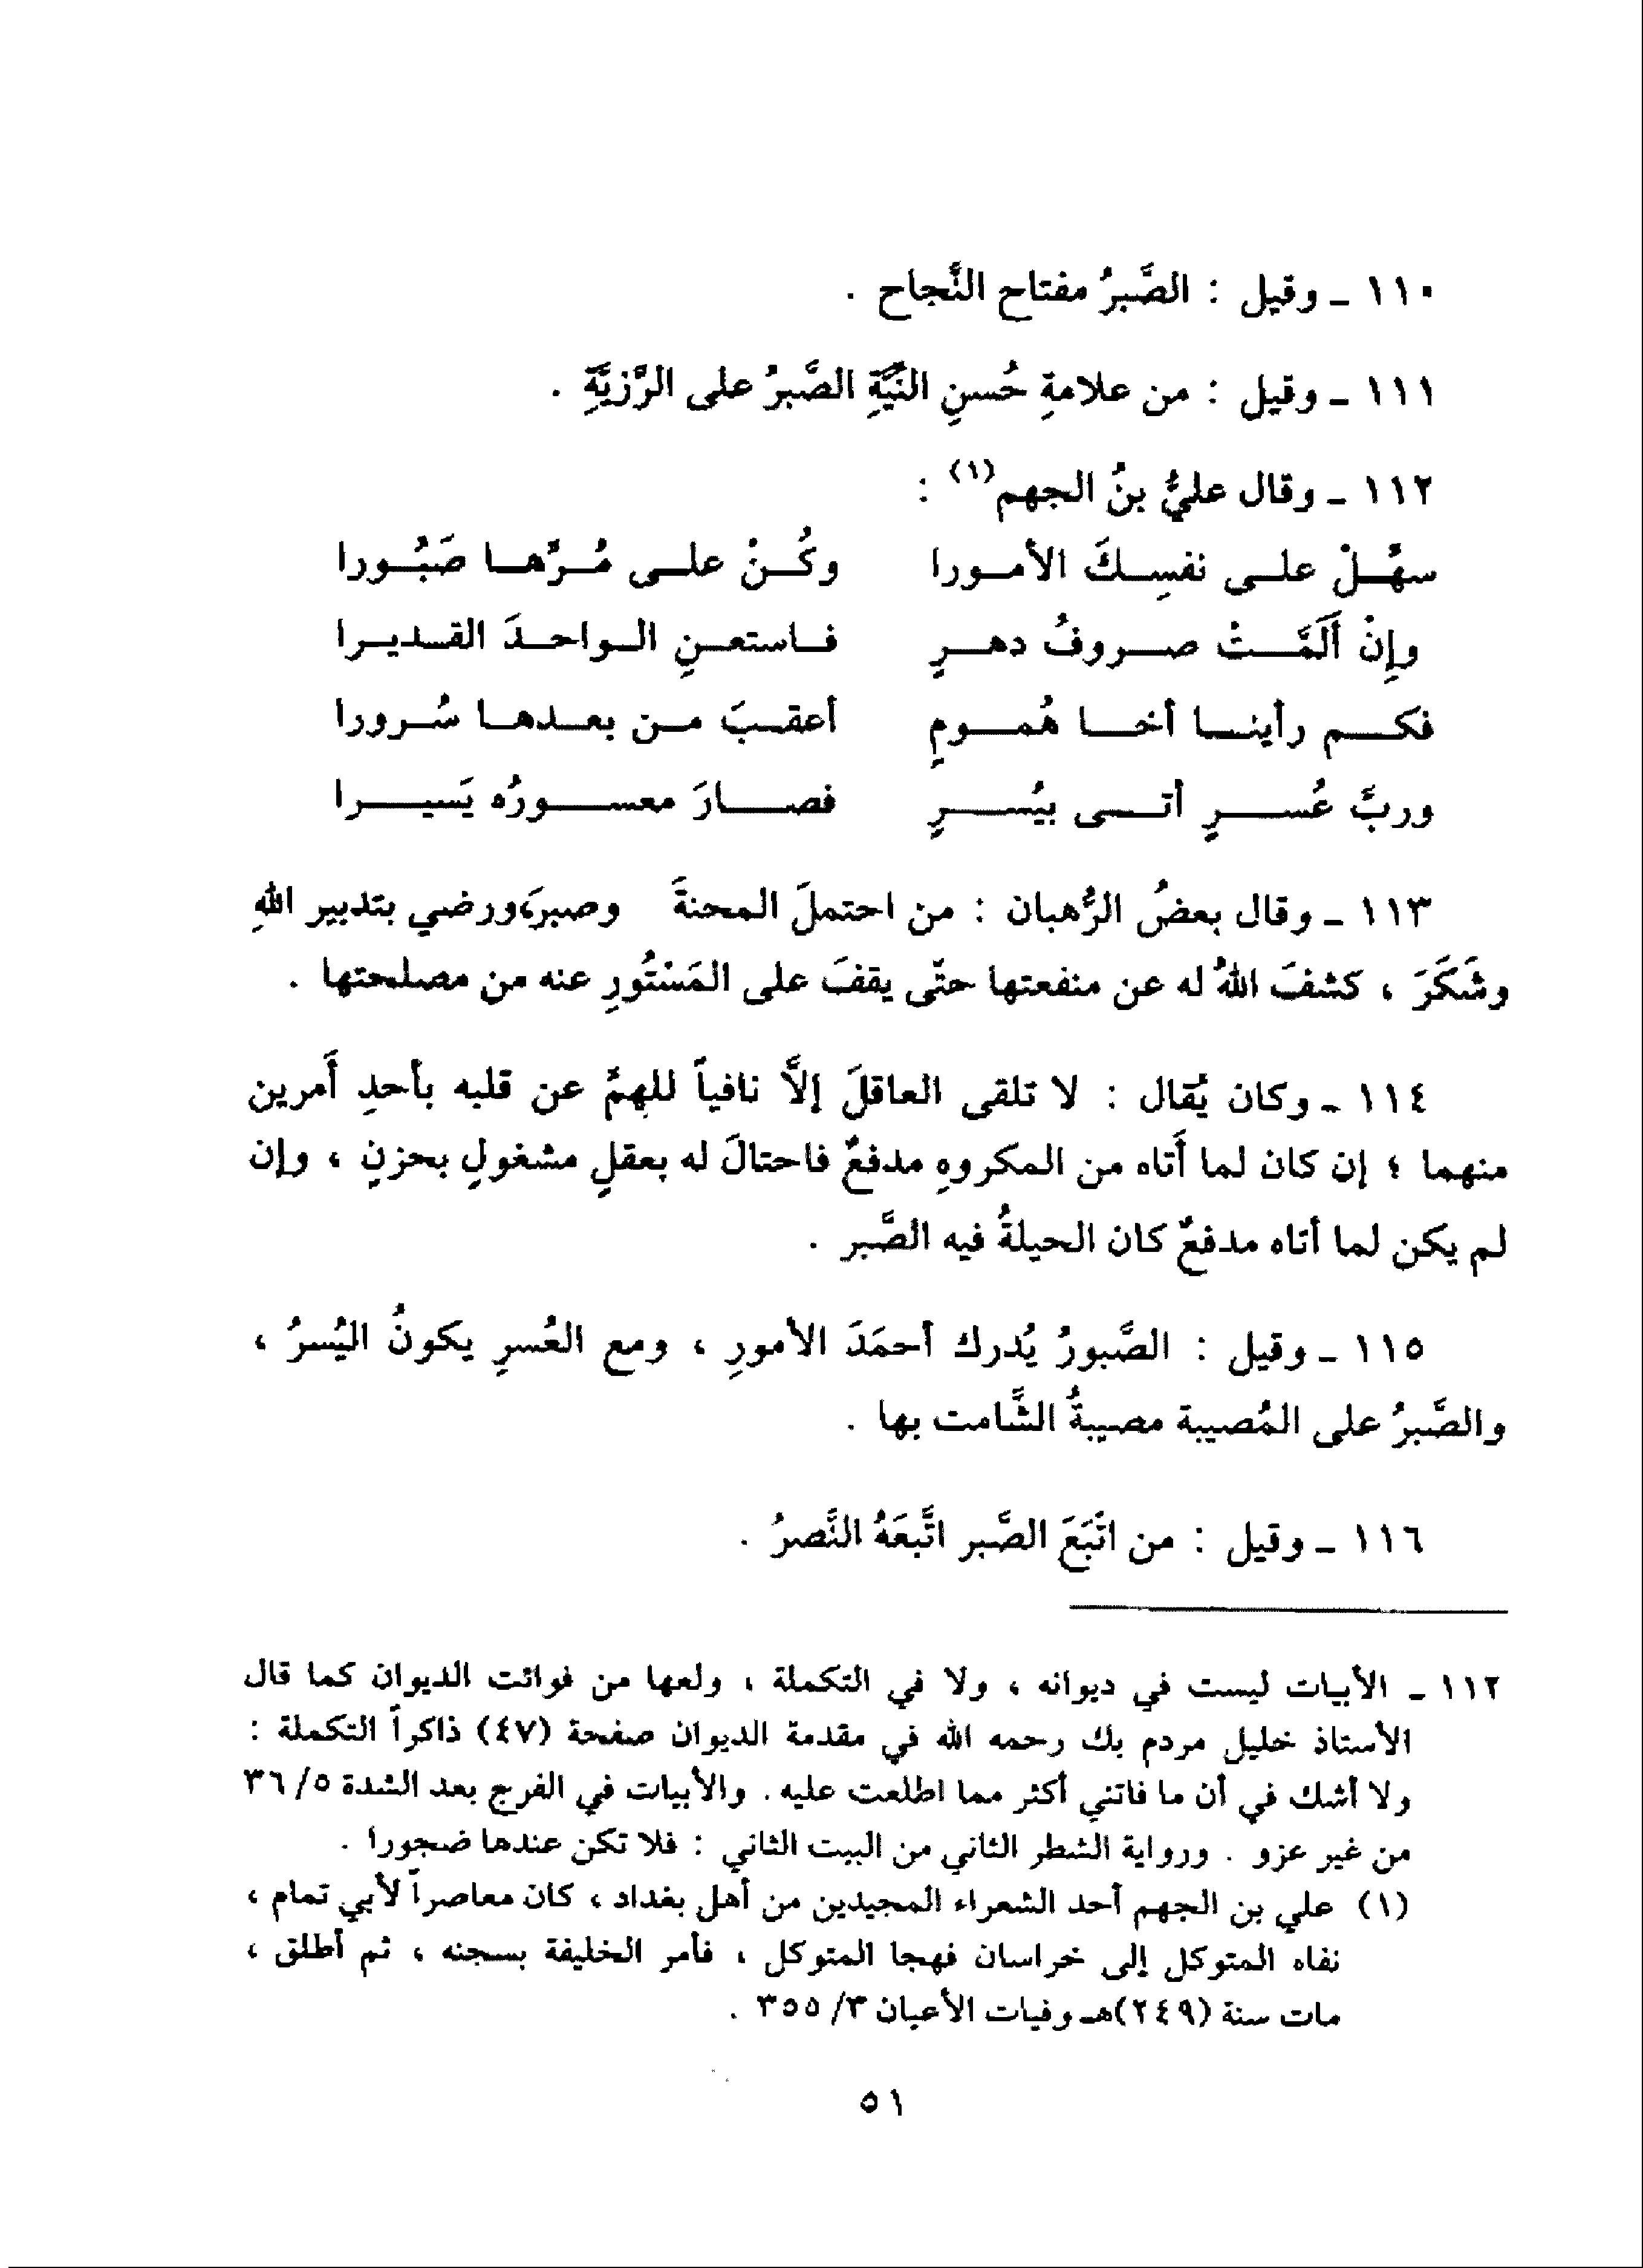 ١١٠ ـ وقيل : الصَّبرُ مفتاح النَّجاح .
١١١ ـ وقيل : من علامةِ حُسنِ النِّيَّةِ الصَّبرُ على الرَّزيَّةِ .
١١٢ ـ وقال عليُّ بنُ الجهم(١) :
سهِّلْ على نفسِكَ الأمورا وكُنْ على مُرِّها صَبُورا
وإنْ أَلَمَّتْ صروفُ دهرٍ فاستعنِ الواحدَ القديرا
فكم رأينا أخا هُمومٍ أعقبَ من بعدها سُرورا
وربَّ عُسرٍ أتى بيُسرٍ فصارَ معسورُه يَسيرا
١١٣ ـ وقال بعضُ الرُّهبان : من احتملَ المحنةَ وصبرَ،ورضي بتدبير اللهِ
وشَكَرَ ، كشفَ اللهُ له عن منفعتها حتّى يقفَ على المَسْتُورِ عنه من مصلحتها .
١١٤ ـ وكان يُقال : لا تلقى العاقلَ إلاَّ نافياً للهمِّ عن قلبه بأحدِ أَمرين
منهما ؛ إن كان لما أَتاه من المكروهِ مدفعٌ فاحتالَ له بعقلٍ مشغولٍ بحزنٍ ، وإن
لم يكن لما أتاه مدفعٌ كان الحيلةُ فيه الصَّبر .
١١٥ ـ وقيل : الصَّبورُ يُدرك أحمَدَ الأمورِ ، ومع العُسرِ يكونُ اليُسرُ ،
والصَّبرُ على المُصيبة مصيبةُ الشَّامت بها .
١١٦ ـ وقيل : من اتَّبَعَ الصَّبر اتَّبعَهُ النَّصرُ .
١١٢ ـ الأبيات ليست في ديوانه ، ولا في التكملة ، ولعها من فوائت الديوان كما قال
الأستاذ خليل مردم بك رحمه الله في مقدمة الديوان صفحة (٤٧) ذاكراً التكملة :
ولا أشك في أن ما فاتني أكثر مما اطلعت عليه . والأبيات في الفرج بعد الشدة ٥/ ٣٦
من غير عزو . ورواية الشطر الثاني من البيت الثاني : فلا تكن عندها ضجورا .
(١) علي بن الجهم أحد الشعراء المجيدين من أهل بغداد ، كان معاصراً لأبي تمام ،
نفاه المتوكل إلى خراسان فهجا المتوكل ، فأمر الخليفة بسجنه ، ثم أطلق ،
مات سنة (٢٤٩)هـ وفيات الأعيان ٣/ ٣٥٥ .
٥١